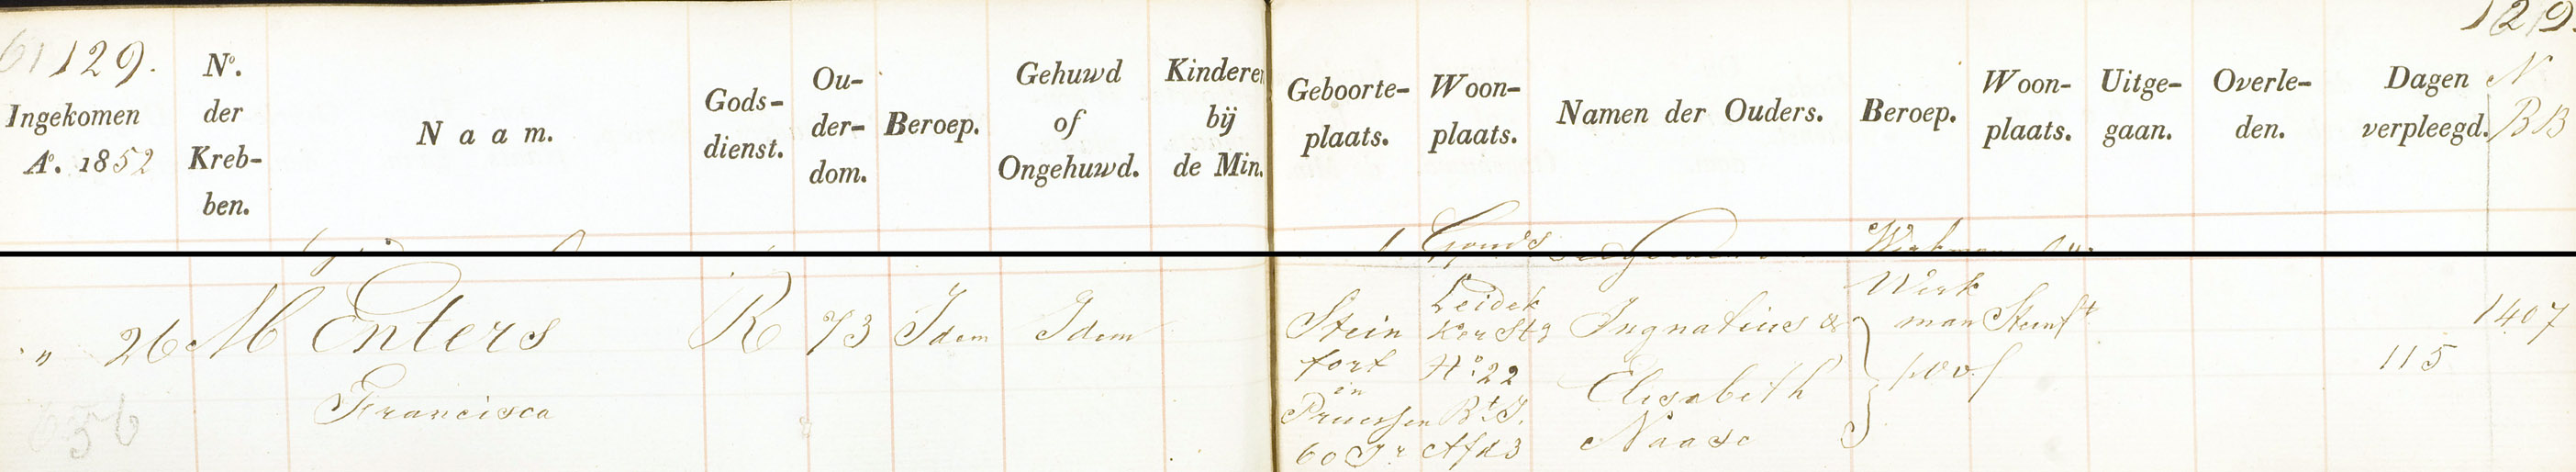 61 129. 129.
Ingekomen Aº. 1852
Nº. der Kreb-ben.
N a a m.
Gods-dienst.
Ou-der-dom.
Beroep.
Gehuwd of Ongehuwd.
Kinderen bij de Min.
Geboorte-plaats.
Woon-plaats.
Namen der Ouders.
Beroep.
Woon-plaats.
Uitge-gaan.
Overle-den.
Dagen verpleegd.
N BB
Werkman
" 26 M Enters Francisca
R 73 Idem Idem
Stein
fort
in
Pruessen
60 Jr
Leidsk
Ker Stg
Nº. 22
Bt J.
Afd 3
Ingnatius &
Elisabith
Naase
Werk
man
Steinft
115
1407
56